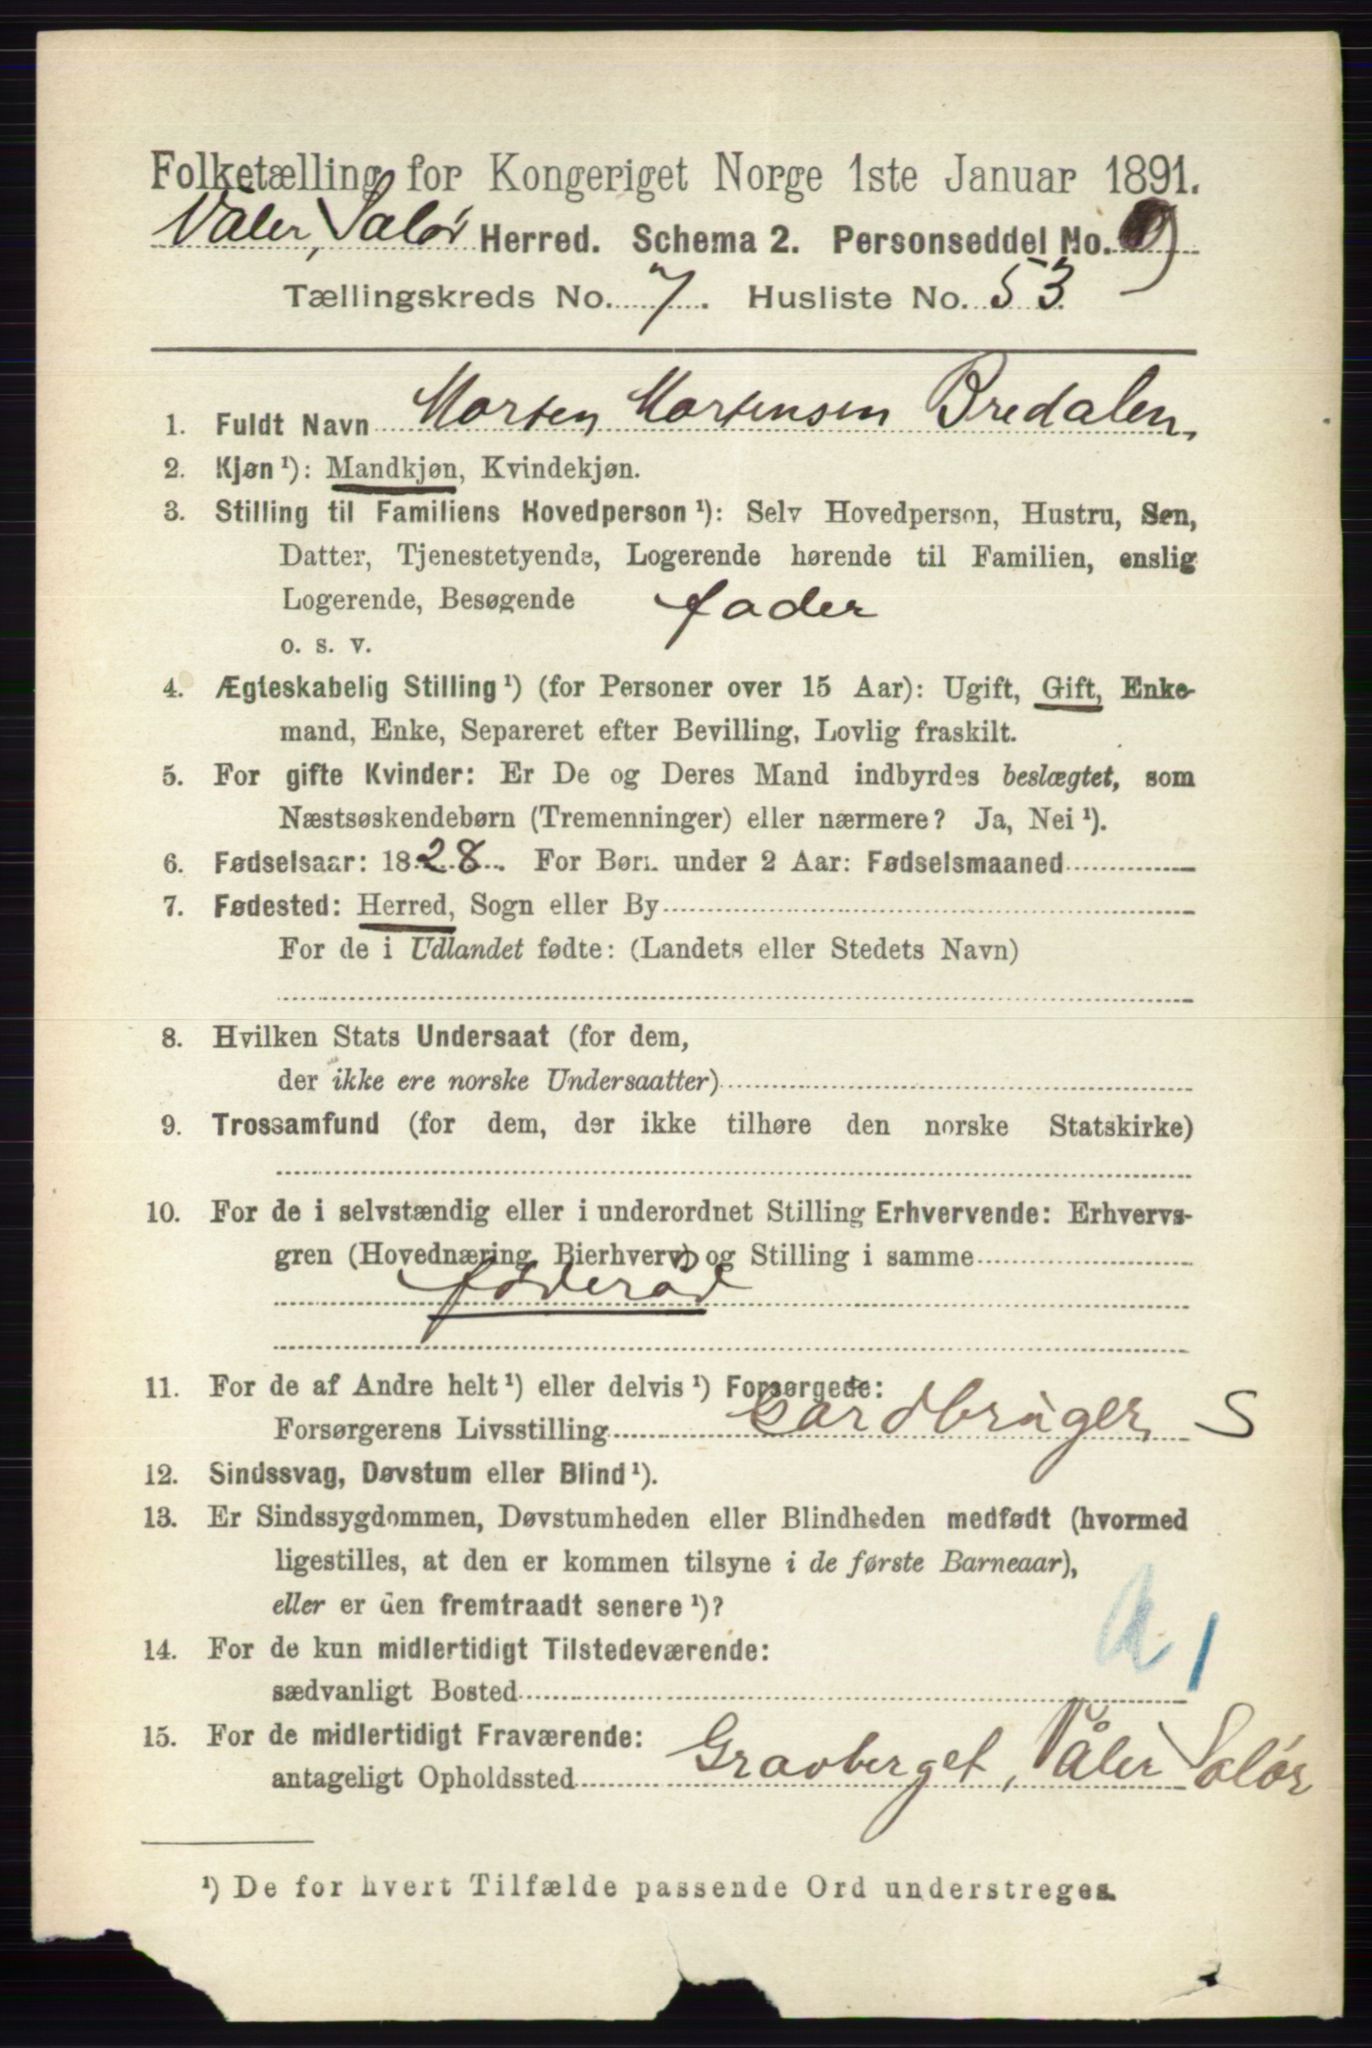 Folketælling for Kongeriget Norge 1ste Januar 1891.
Våler, Solør Herred. Schema 2. Personseddel No. 9
Tællingskreds No. 7. Husliste No. 53
1. Fuldt Navn Morten Mortensen Bredalen
2. Kjøn ¹): Mandkjøn, Kvindekjøn.
3. Stilling til Familiens Hovedperson ¹): Selv Hovedperson, Hustru, Søn,
Datter, Tjenestetyende, Logerende hørende til Familien, enslig
Logerende, Besøgende fader
o. s. v.
4. Ægteskabelig Stilling ¹) (for Personer over 15 Aar): Ugift, Gift, Enke-
mand, Enke, Separeret efter Bevilling, Lovlig fraskilt.
5. For gifte Kvinder: Er De og Deres Mand indbyrdes beslægtet, som
Næstsøskendebørn (Tremenninger) eller nærmere? Ja, Nei ¹).
6. Fødselsaar: 1828. For Børn under 2 Aar: Fødselsmaaned
7. Fødested: Herred, Sogn eller By
For de i Udlandet fødte: (Landets eller Stedets Navn)
8. Hvilken Stats Undersaat (for dem,
der ikke ere norske Undersaatter)
9. Trossamfund (for dem, der ikke tilhøre den norske Statskirke)
10. For de i selvstændig eller i underordnet Stilling Erhvervende: Erhvervs-
gren (Hovednæring, Bierhverv) og Stilling i samme
föderåd
11. For de af Andre helt ¹) eller delvis ¹) Forsørgede:
Forsørgerens Livsstilling Gardbruger S
12. Sindssvag, Døvstum eller Blind ¹).
13. Er Sindssygdommen, Døvstumheden eller Blindheden medfødt (hvormed
ligestilles, at den er kommen tilsyne i de første Barneaar),
eller er den fremtraadt senere ¹)?
14. For de kun midlertidigt Tilstedeværende:
sædvanligt Bosted
15. For de midlertidigt Fraværende:
antageligt Opholdssted Gravberget, Våler Solør
¹) De for hvert Tilfælde passende Ord understreges.